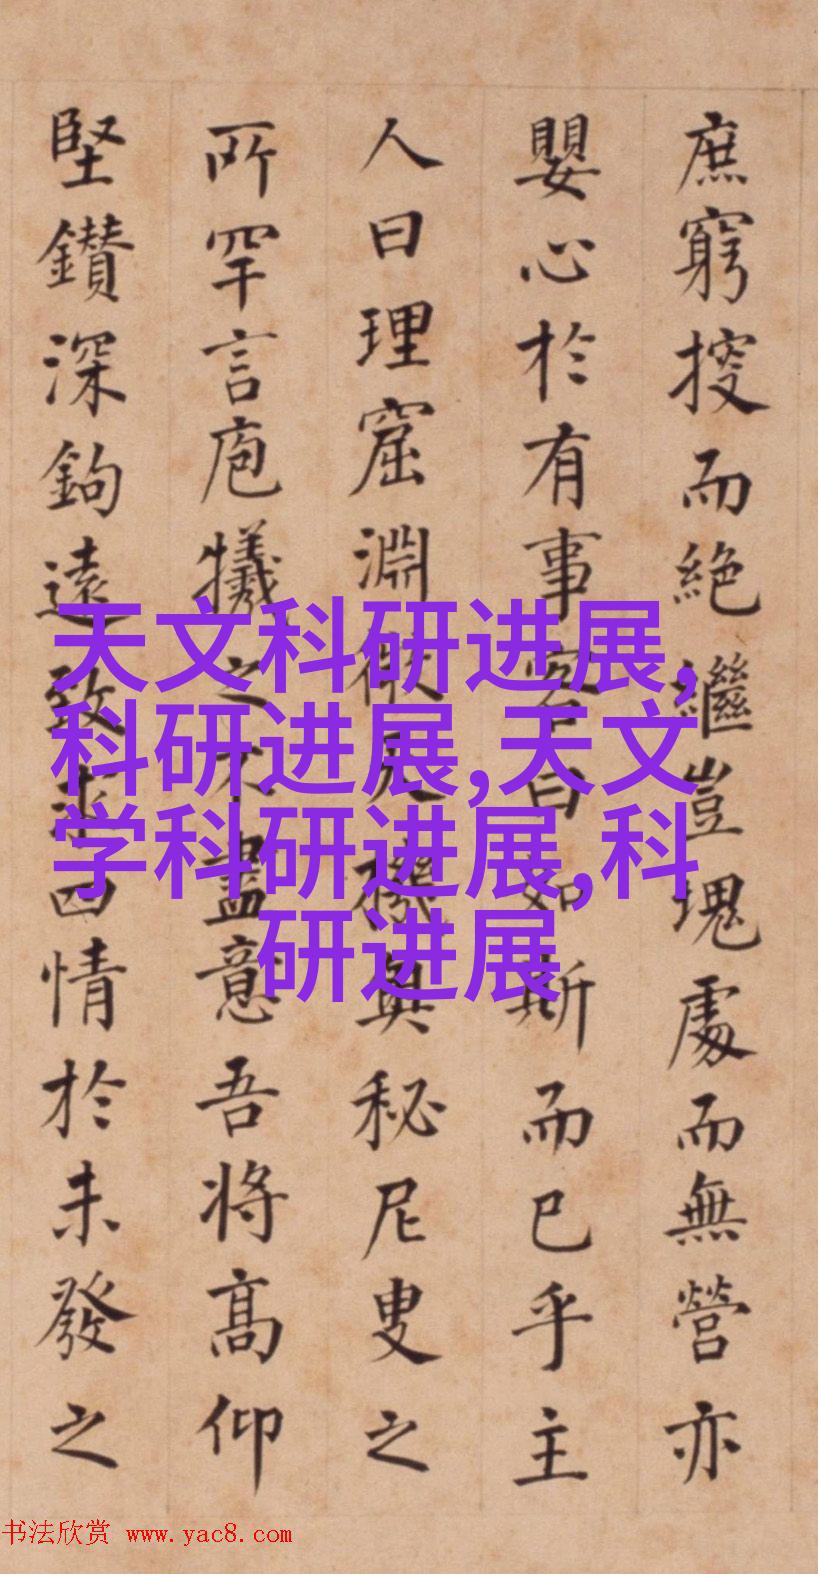 庶窮搜而絕繼豈塊處而無營亦
嬰心於有事客曰如斯而已乎主
人曰理窟淵微天機奧秘尼叟之
所罕言庖犧之不盡意吾将髙仰
堅鑽深鉤遠致求四情於未發之
天文科研进展,
科研进展,天文
学科研进展,科
研进展
书法欣赏 www.yac8.com